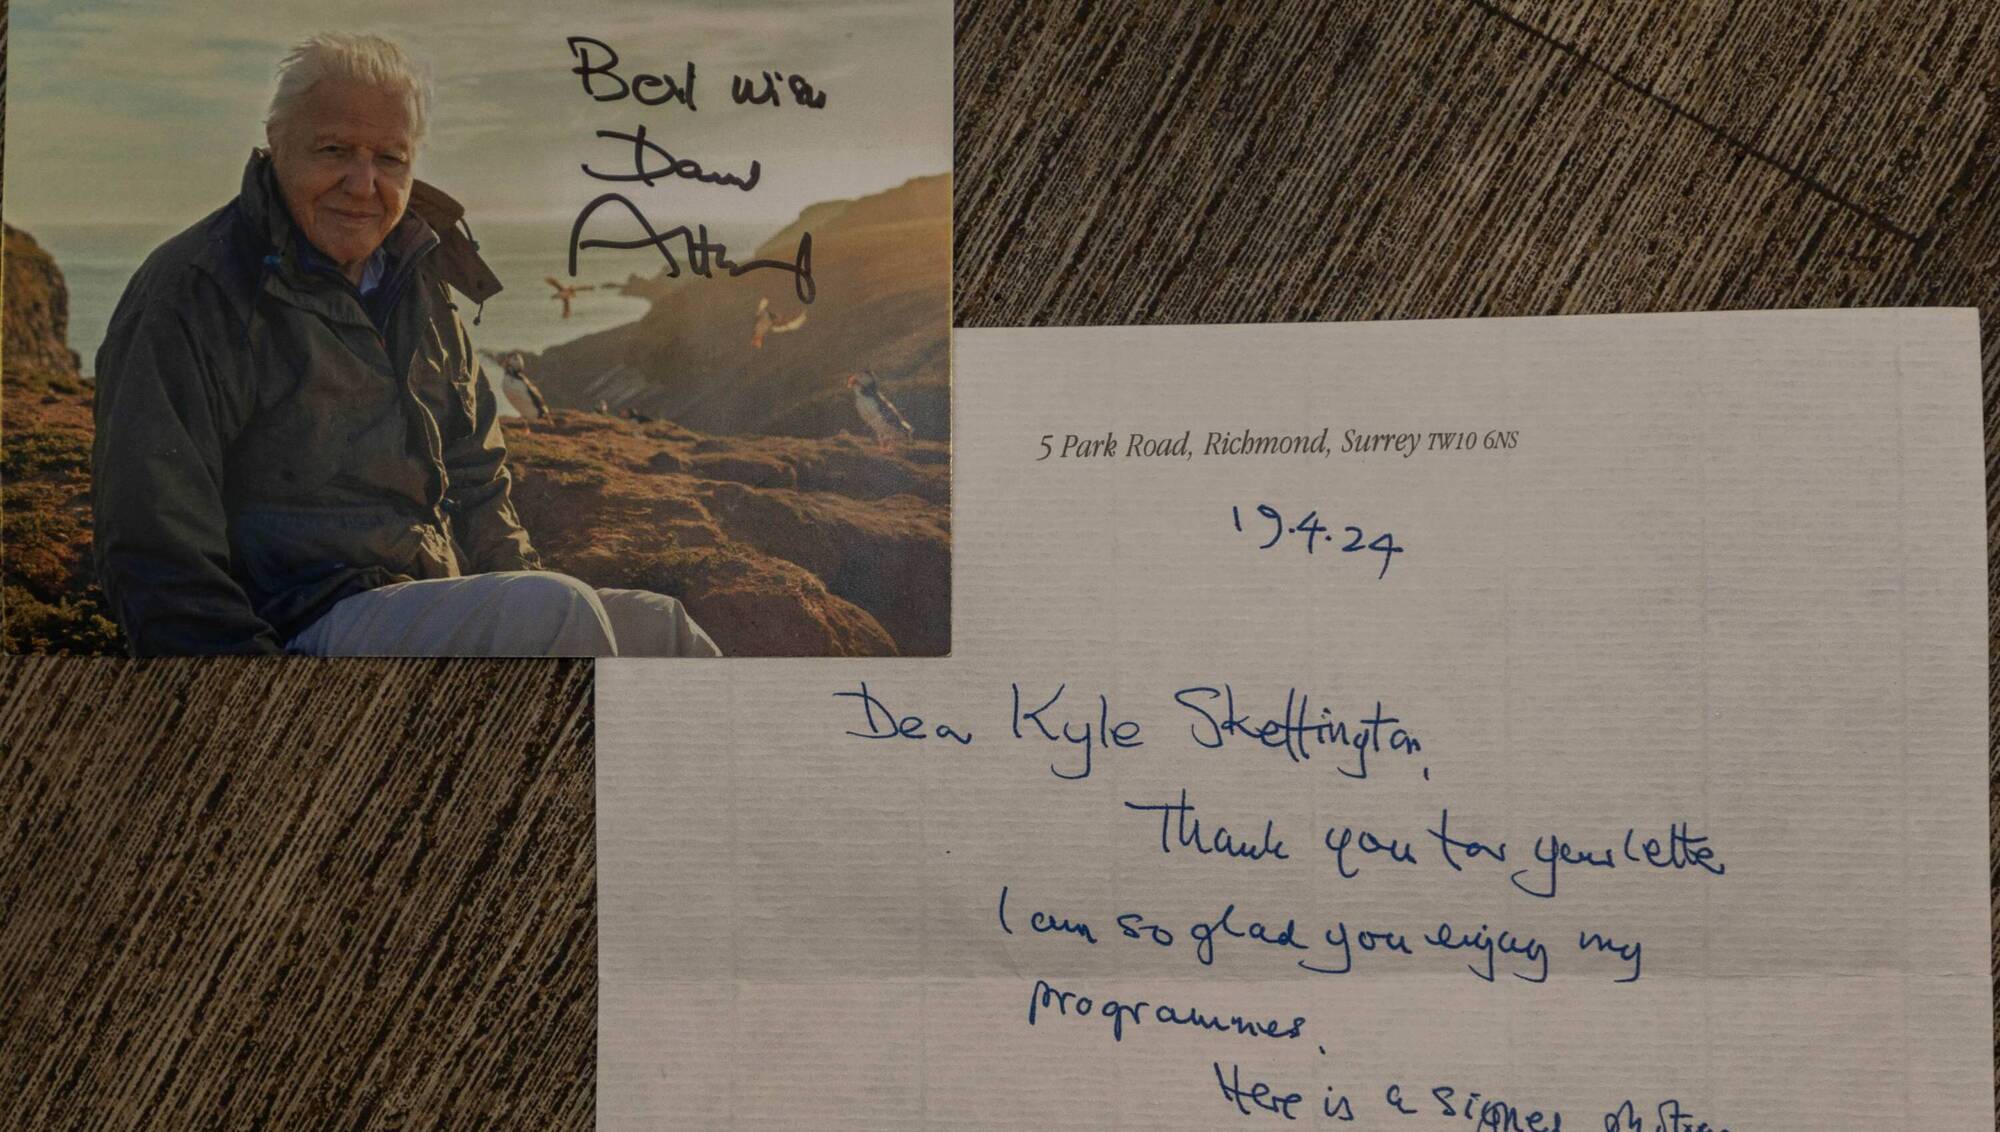 Best wishes
David
Attenborough
5 Park Road, Richmond, Surrey TW10 6NS
19.4.24
Dear Kyle Skeffington,
Thank you for your letter
I am so glad you enjoy my
programmes.
Here is a signed